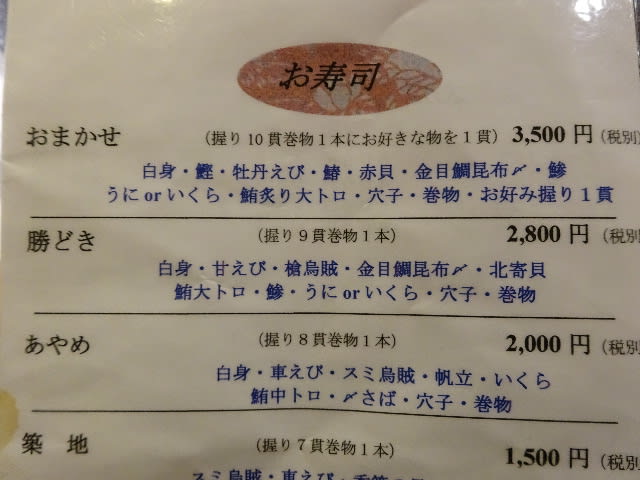 お寿司
おまかせ (握り10貫巻物1本にお好きな物を1貫) 3,500円(税別)
白身・鰹・牡丹えび・鰆・赤貝・金目鯛昆布〆・鯵
うにorいくら・鮪炙り大トロ・穴子・巻物・お好み握り1貫
勝どき (握り9貫巻物1本) 2,800円(税別
白身・甘えび・槍烏賊・金目鯛昆布〆・北寄貝
鮪大トロ・鯵・うにorいくら・穴子・巻物
あやめ (握り8貫巻物1本) 2,000円(税別
白身・車えび・スミ烏賊・帆立・いくら
鮪中トロ・〆さば・穴子・巻物
築 地 (握り7貫巻物1本) 1,500円(税別
スミ烏賊・車えび・